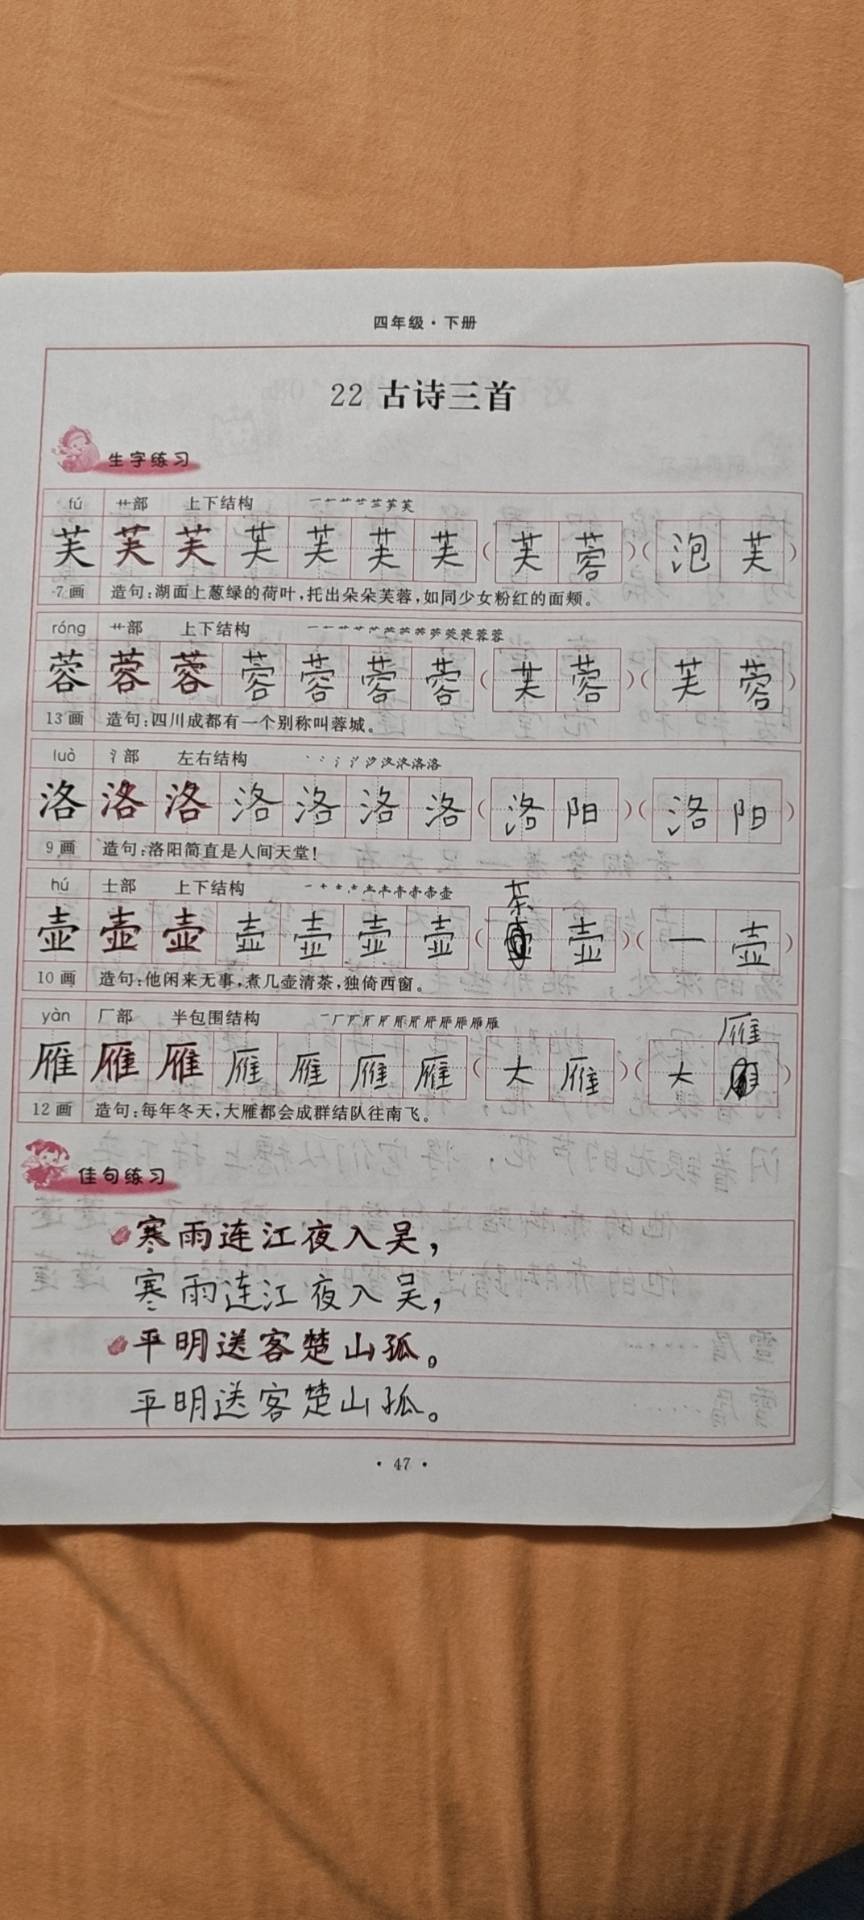 四年级·下册
22 古诗三首
生字练习
fú 艹部 上下结构
芙 芙 芙 芙 芙 芙 芙 (芙 蓉)(泡 芙)
7画 造句:湖面上葱绿的荷叶,托出朵朵芙蓉,如同少女粉红的面颊。
róng 艹部 上下结构
蓉 蓉 蓉 蓉 蓉 蓉 蓉 (芙 蓉)(芙 蓉)
13画 造句:四川成都有一个别称叫蓉城。
luò 氵部 左右结构
洛 洛 洛 洛 洛 洛 洛 (洛 阳)(洛 阳)
9画 造句:洛阳简直是人间天堂!
hú 士部 上下结构
壶 壶 壶 壶 壶 壶 壶 (茶 壶)(一 壶)
10画 造句:他闲来无事,煮几壶清茶,独倚西窗。
yàn 厂部 半包围结构
雁 雁 雁 雁 雁 雁 雁 (大 雁)(大 雁)
12画 造句:每年冬天,大雁都会成群结队往南飞。
佳句练习
寒雨连江夜入吴,
寒雨连江夜入吴,
平明送客楚山孤。
平明送客楚山孤。
·47·